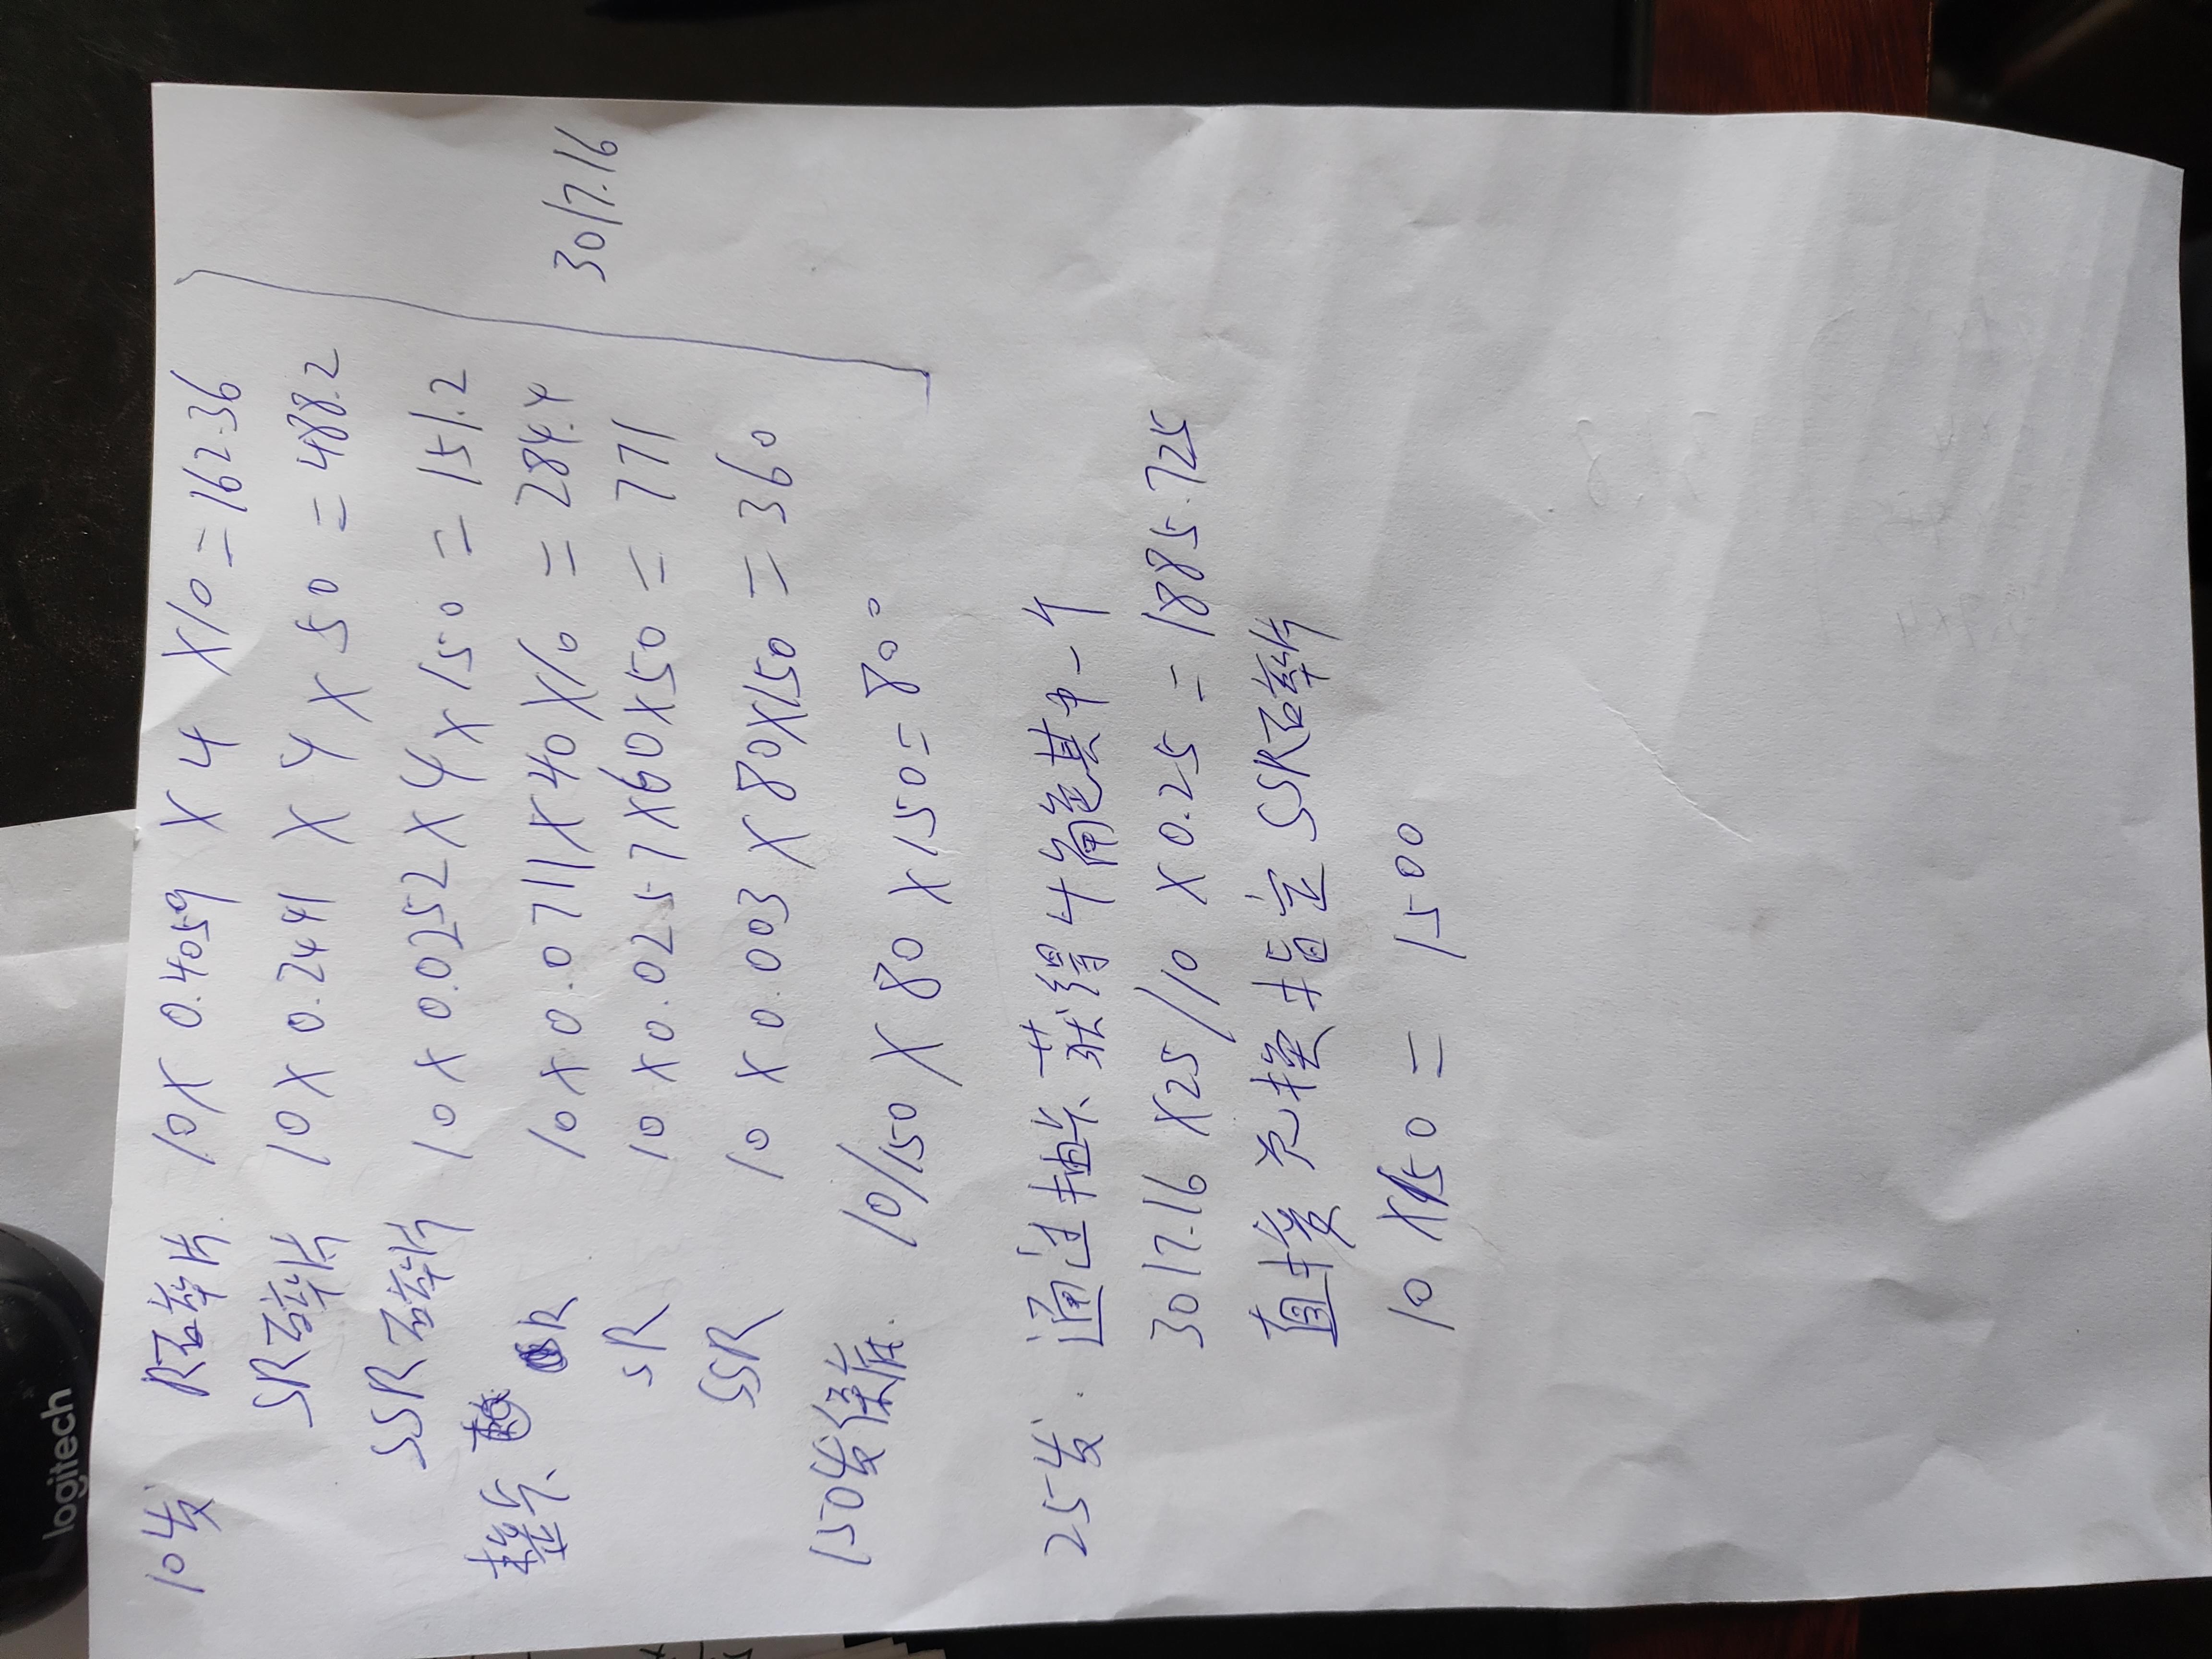 10发 R碎片 10 X 0.4059 X 4 X 10 = 162.36
SR碎片 10 X 0.2441 X 4 X 50 = 488.2
SSR碎片 10 X 0.0252 X 4 X 150 = 151.2
整卡 R 10 X 0.0711 X 40 X 10 = 284.4
SR 10 X 0.0257 X 60 X 50 = 771
SSR 10 X 0.003 X 80 X 150 = 360
3017.16
150发保底. 10/150 X 80 X 150 = 800
25发. 通过抽卡获得4角色其中一个
3017.16 X 25/10 X 0.25 = 1885.725
直接兑换指定SSR碎片
10 X 150 = 1500
logitech